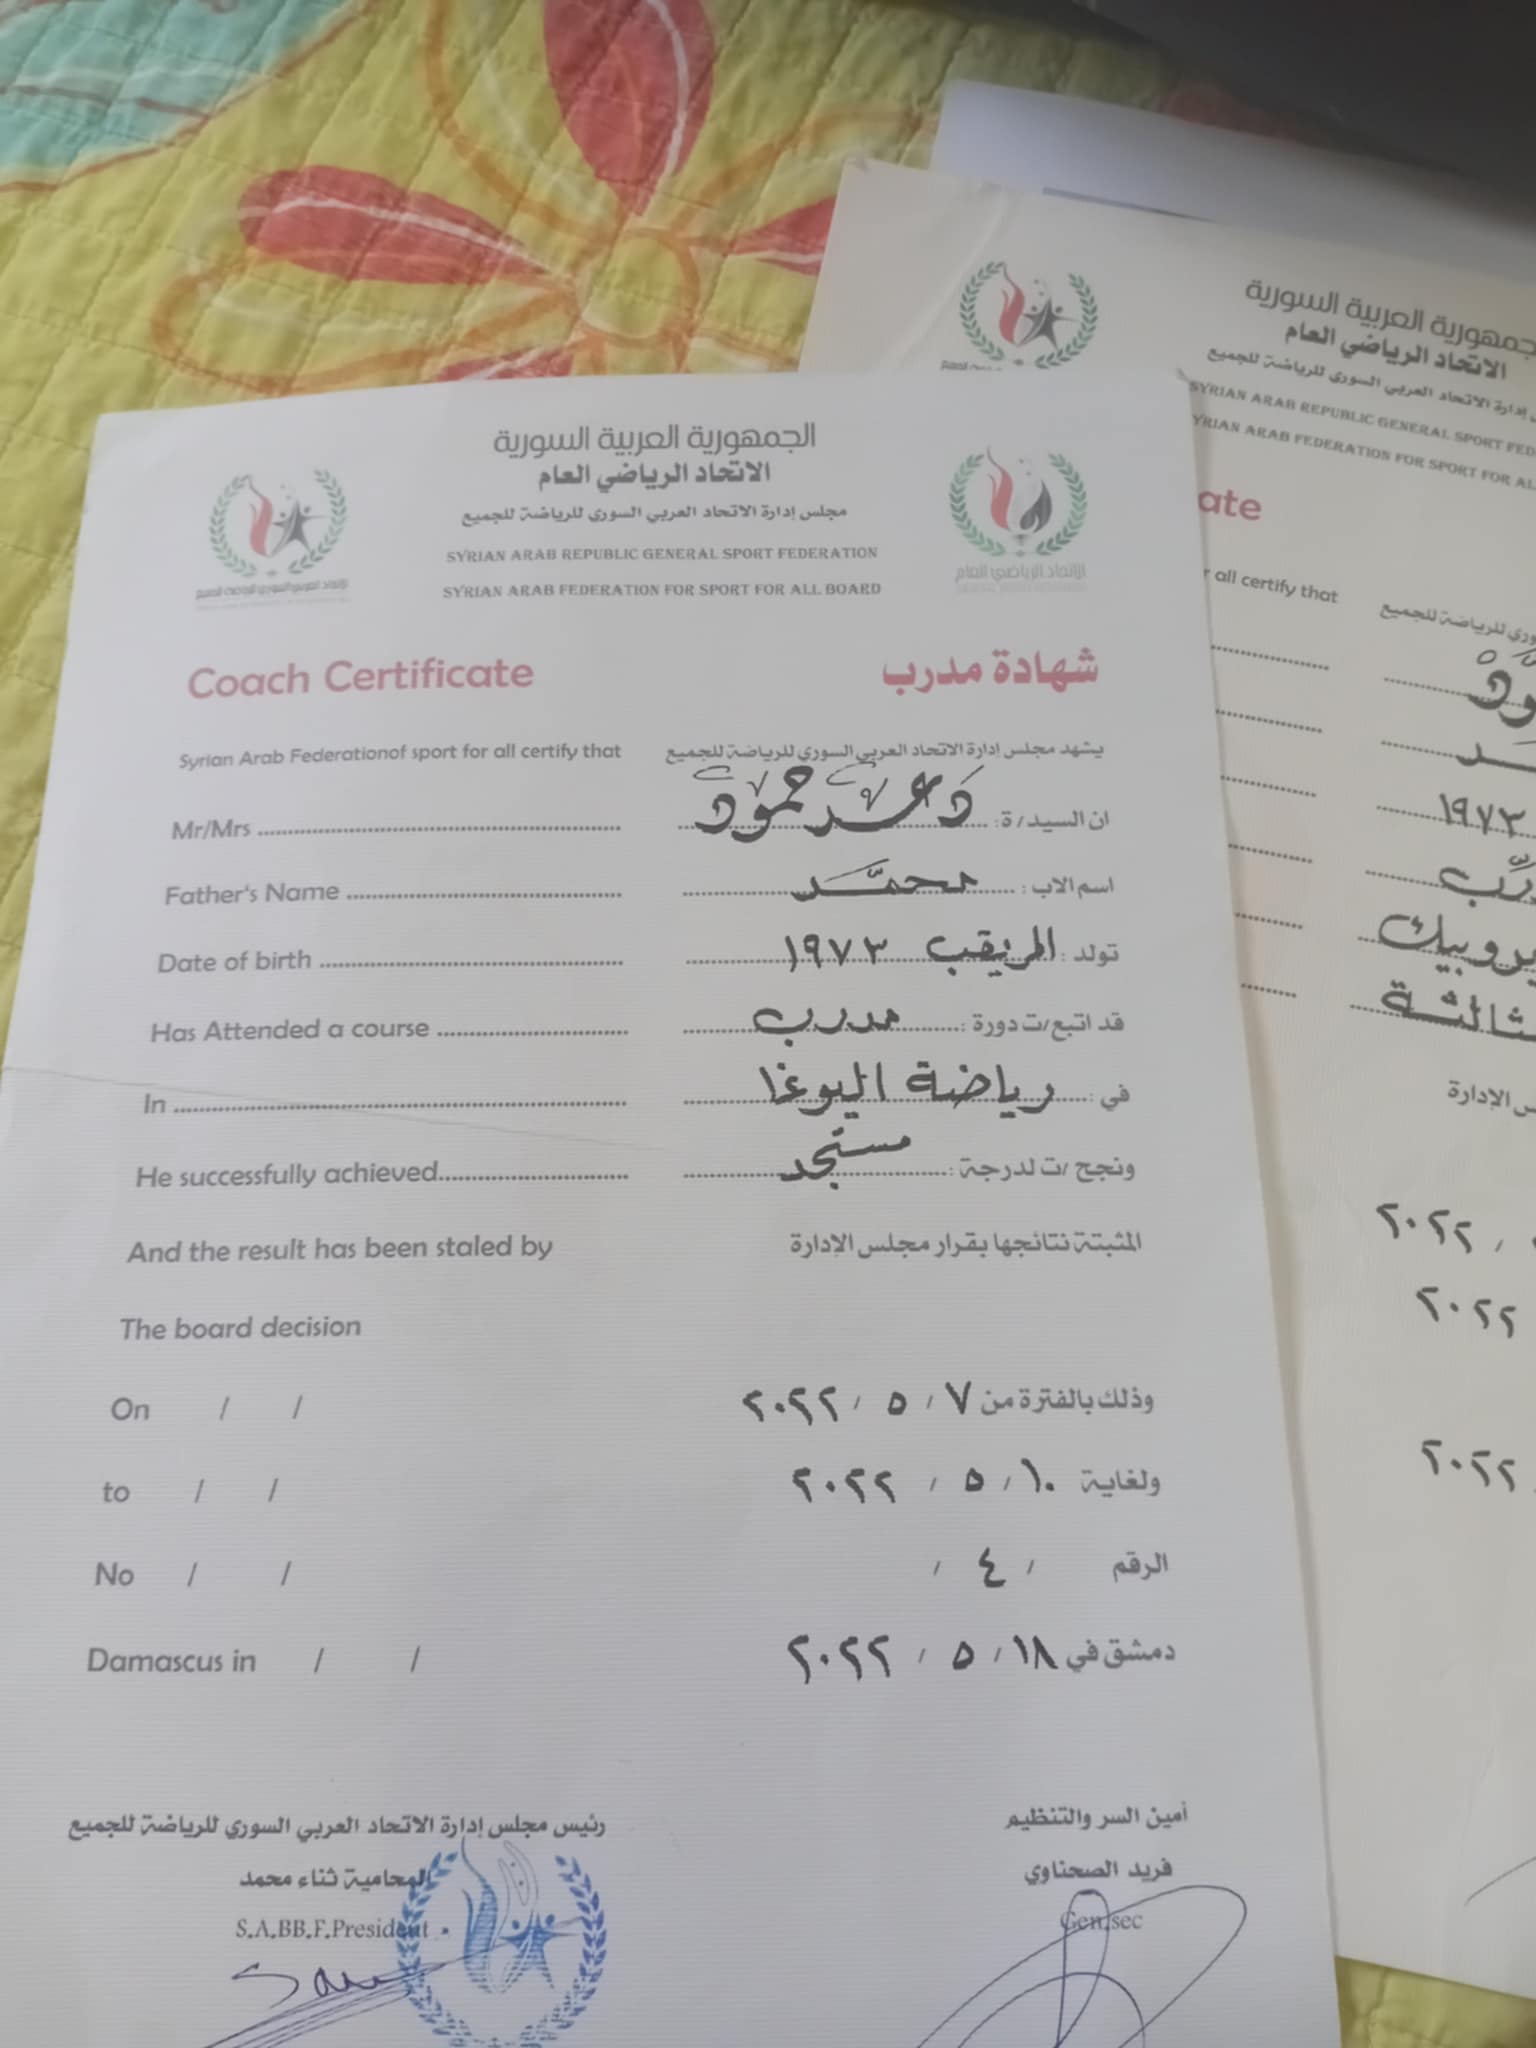 الجمهورية العربية السورية
الاتحاد الرياضي العام
مجلس إدارة الاتحاد العربي السوري للرياضة للجميع
SYRIAN ARAB REPUBLIC GENERAL SPORT FEDERATION
SYRIAN ARAB FEDERATION FOR SPORT FOR ALL BOARD
الاتحاد العربي السوري للرياضة للجميع
الاتحاد الرياضي العام
Coach Certificate
شهادة مدرب
Syrian Arab Federationof sport for all certify that
يشهد مجلس إدارة الاتحاد العربي السوري للرياضة للجميع
Mr/Mrs
ان السيد/ة: دعد حمود
Father's Name
اسم الاب: محمد
Date of birth
تولد: المريقب ١٩٧٣
Has Attended a course
قد اتبع/ت دورة: مدرب
In
في: رياضة اليوغا
He successfully achieved
ونجح /ت لدرجة: مستجد
And the result has been staled by
المثبتة نتائجها بقرار مجلس الإدارة
The board decision
On / /
وذلك بالفترة من ٧ / ٥ / ٢٠٢٢
to / /
ولغاية ١٠ / ٥ / ٢٠٢٢
No / /
الرقم / ٤ /
Damascus in / /
دمشق في ١٨ / ٥ / ٢٠٢٢
رئيس مجلس إدارة الاتحاد العربي السوري للرياضة للجميع
المحامية ثناء محمد
S.A.BB.F.President
أمين السر والتنظيم
فريد الصحناوي
Gen.sec
الجمهورية العربية السورية
الاتحاد الرياضي العام
إدارة الاتحاد العربي السوري للرياضة للجميع
SYRIAN ARAB REPUBLIC GENERAL SPORT FED
SYRIAN ARAB FEDERATION FOR SPORT FOR AL
ate
r all certify that
وري للرياضة للجميع
١٩٧٣
الثالثة
س الإدارة
٢٠٢٢
٢٠٢٢
٢٠٢٢